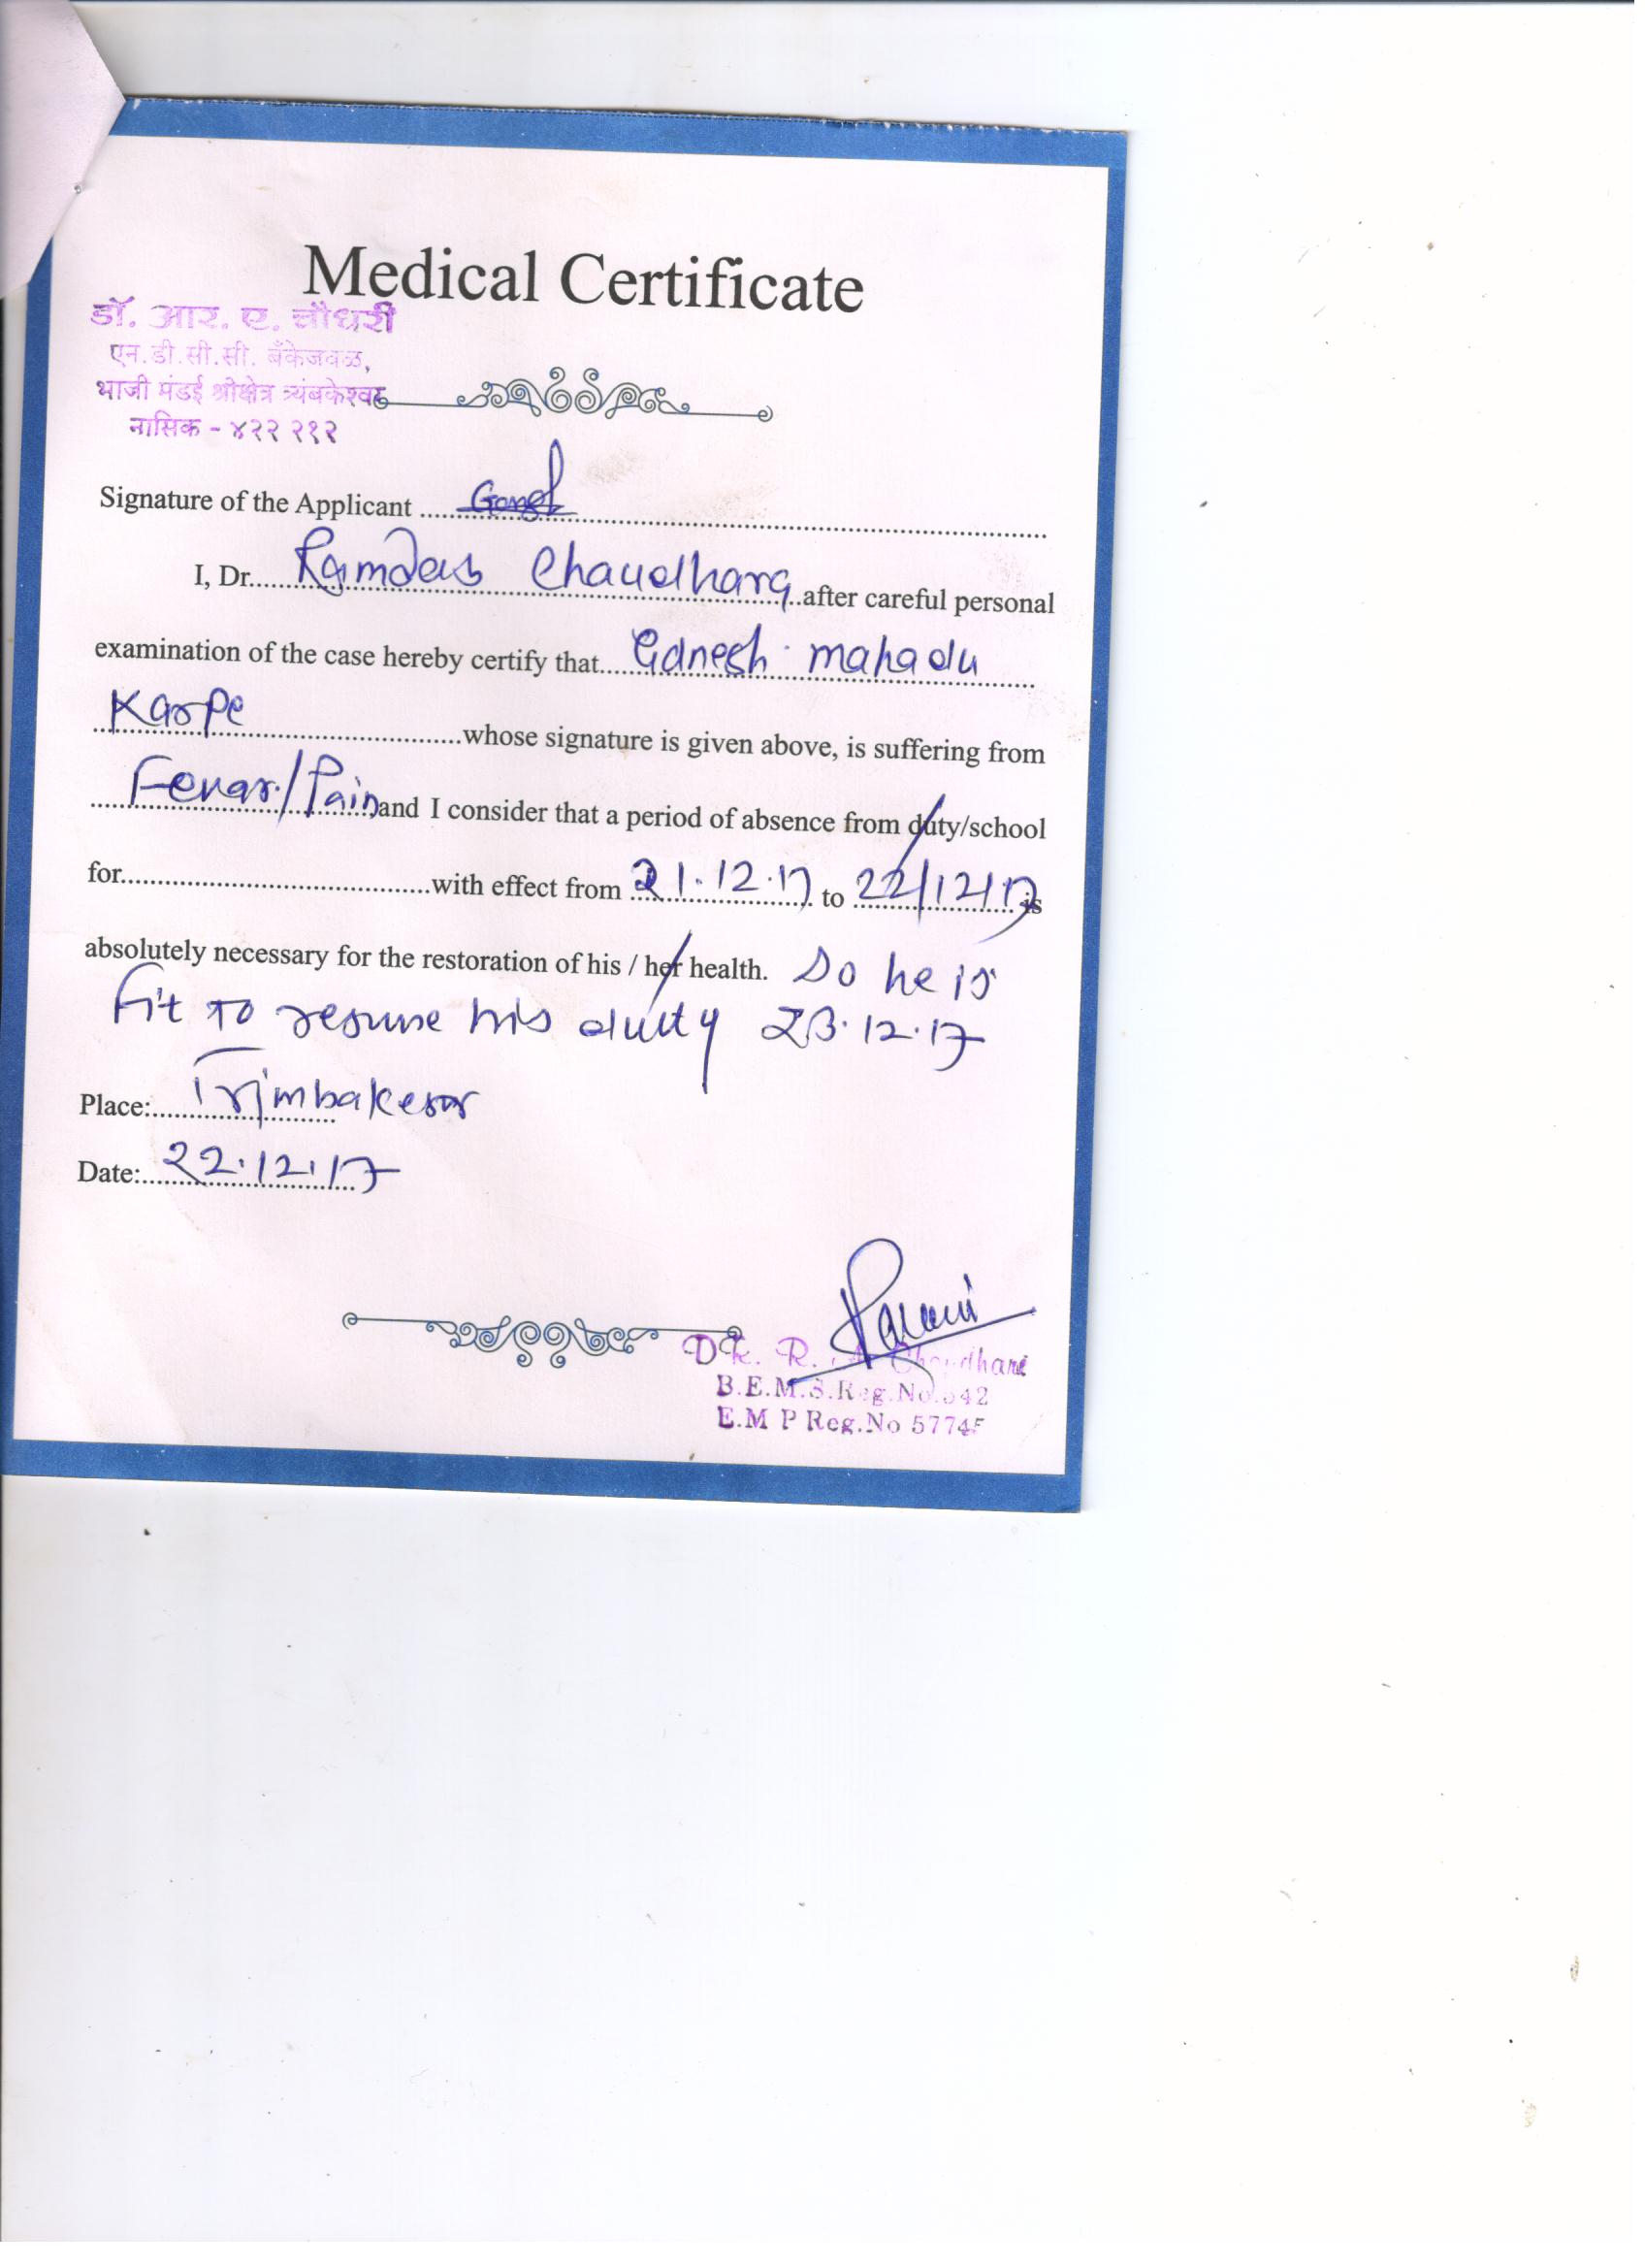 Medical Certificate
डॉ. आर. ए. चौधरी
एन.डी.सी.सी. बँकेजवळ,
भाजी मंडई श्रीक्षेत्र त्र्यंबकेश्वर
नासिक - ४२२ २१२
Signature of the Applicant
I, Dr. Ramdas Chaudhary after careful personal
examination of the case hereby certify that Ganesh mahadu
Karpe whose signature is given above, is suffering from
Fevar/Pain and I consider that a period of absence from duty/school
for with effect from 21.12.17 to 22/12/17 is
absolutely necessary for the restoration of his / her health. So he is
Fit To resume his duity 23.12.17
Place: Trimbakeswr
Date: 22.12.17
DR. R. A. Chaudhari
B.E.M.S.Reg.No.
E.M P Reg.No 57745